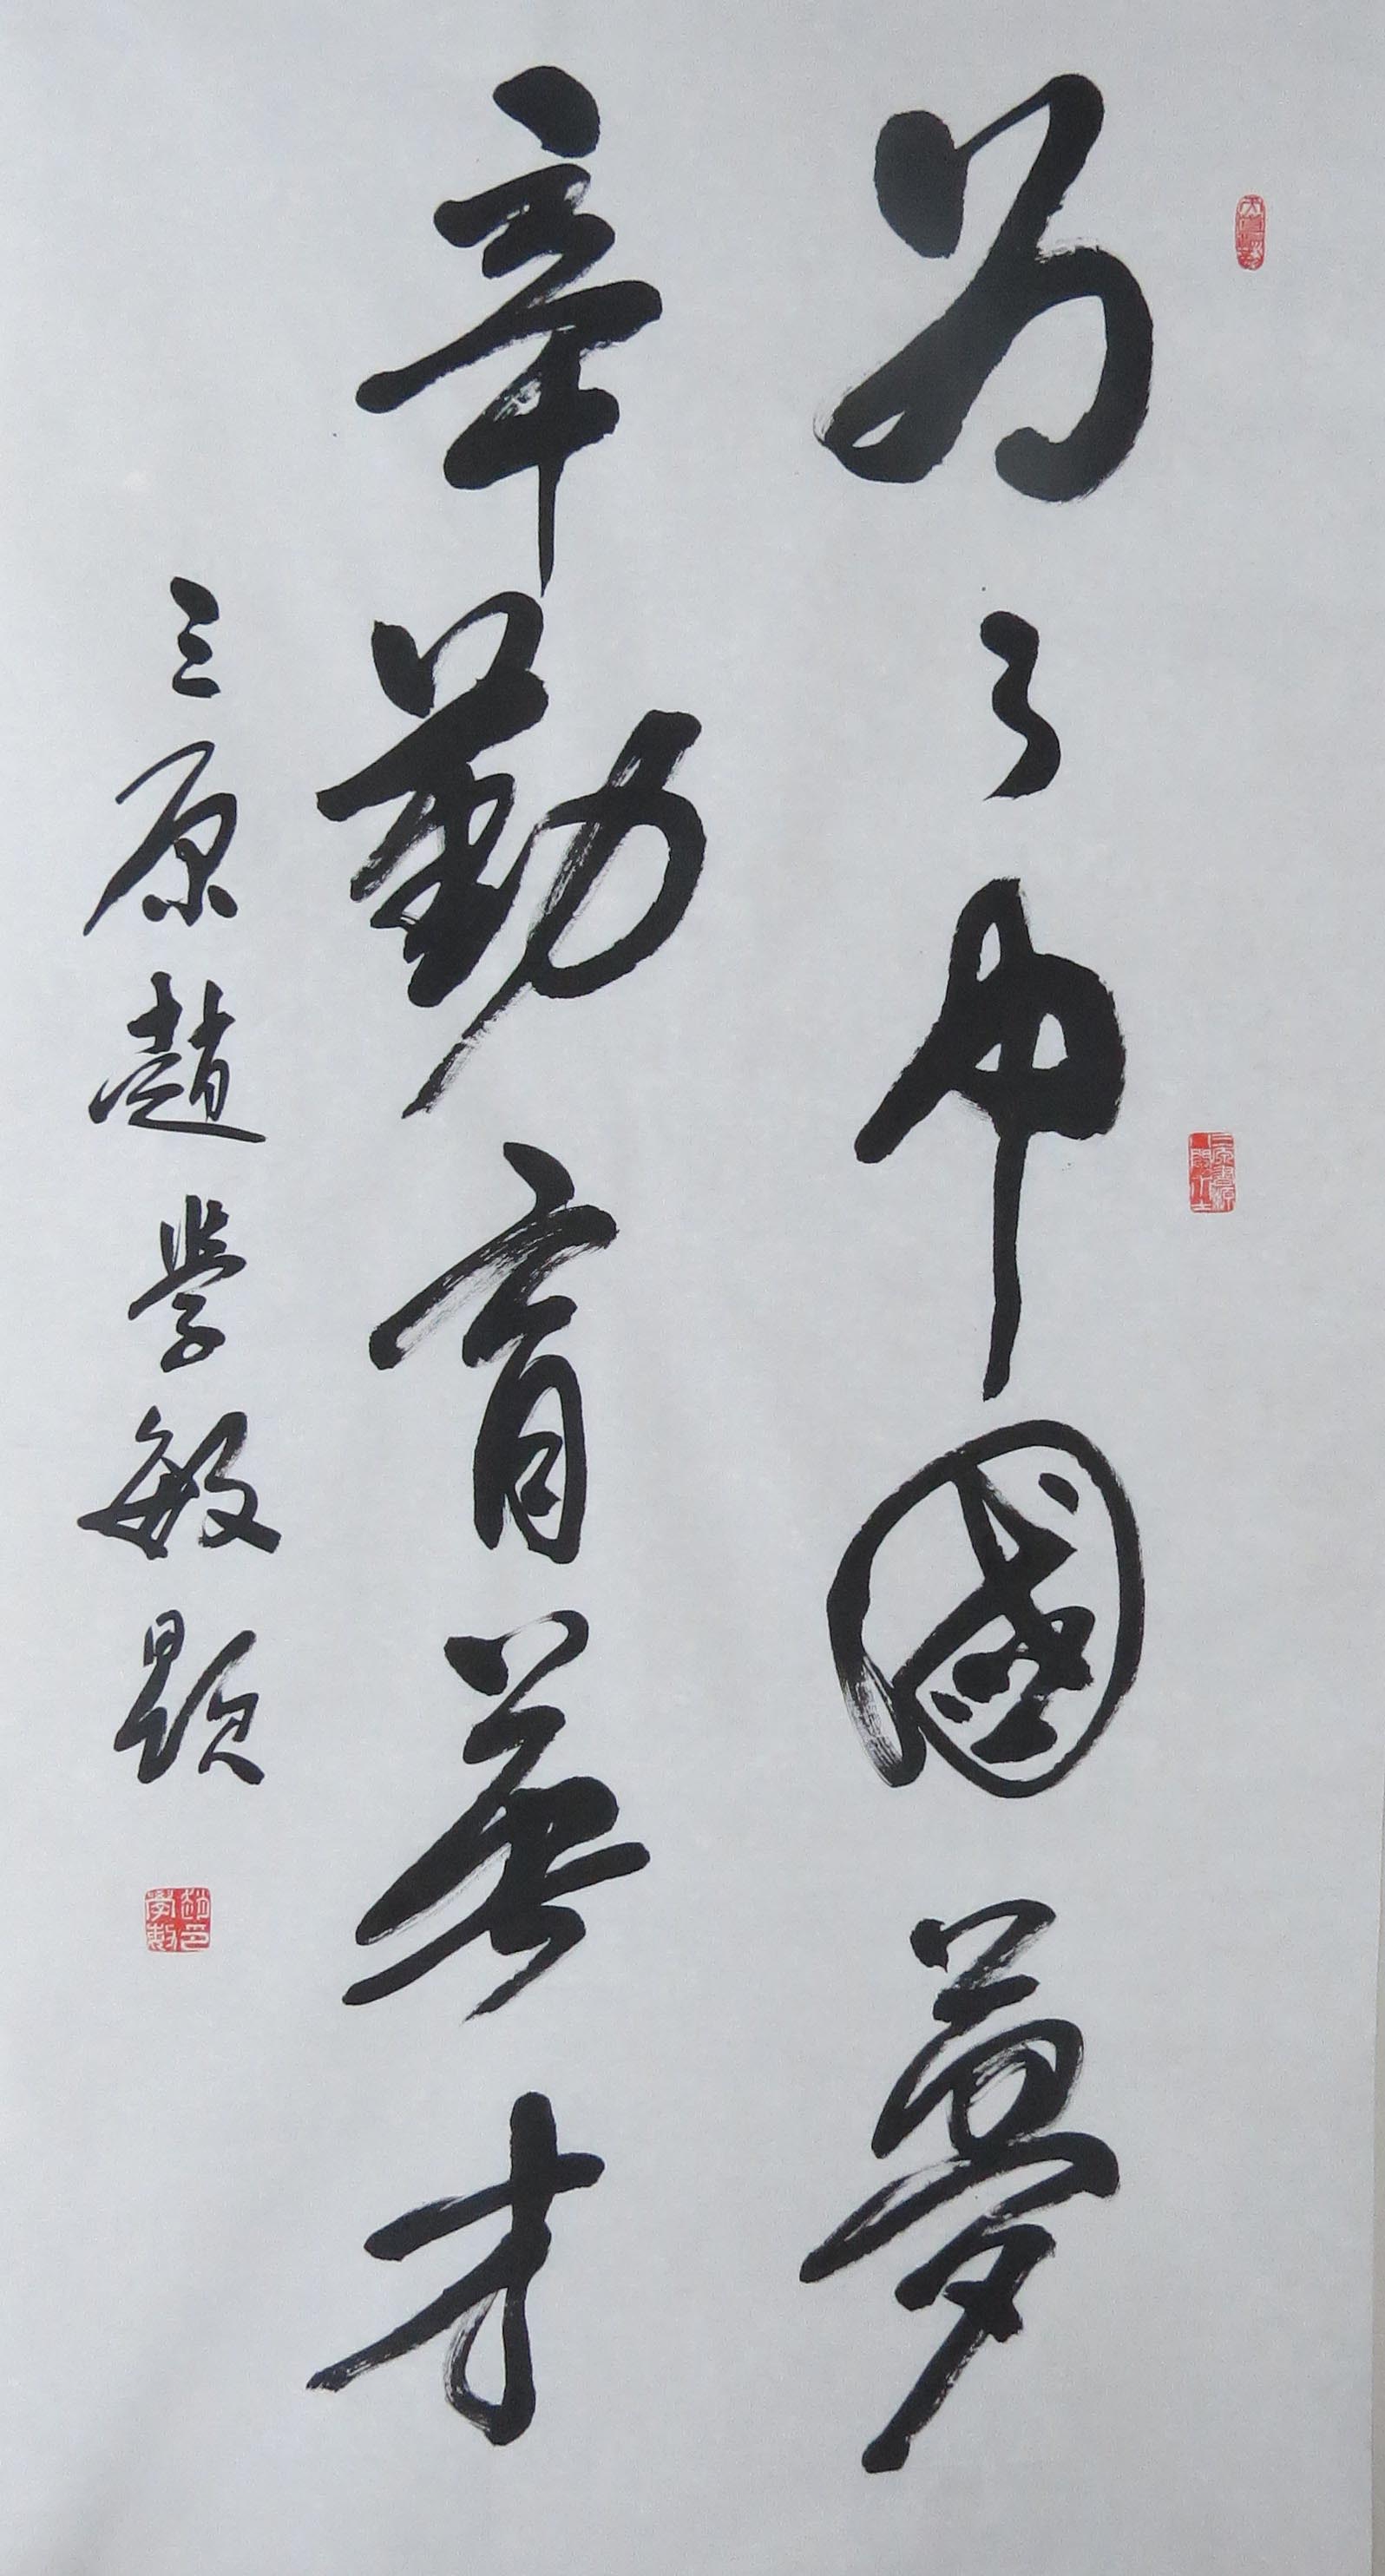 为了中國夢
辛勤育英才
三原趙學敏題